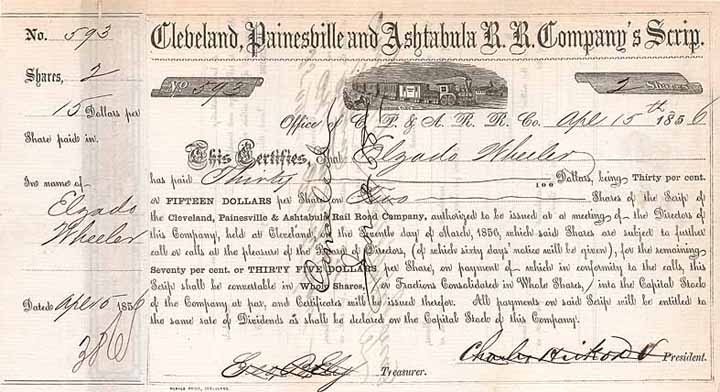 No. 593
Shares, 2
15 Dollars per
Share paid in.
In name of
Elzado
Wheeler
Dated Apl 15 1856
Cleveland, Painesville and Ashtabula R. R. Company's Scrip.
No 593
2 Shares
Office of C. P. & A. R. R. Co. Apl 15th 1856
This Certifies, that Elzado Wheeler
has paid Thirty 100 Dollars, being Thirty per cent.
or FIFTEEN DOLLARS per Share on Two Shares of the Scrip of
the Cleveland, Painesville & Ashtabula Rail Road Company, authorized to be issued at a meeting of the Directors of
this Company, held at Cleveland, on the Seventh day of March, 1856, which said Shares are subject to further
call or calls at the pleasure of the Board of Directors, (of which sixty days' notice will be given), for the remaining
Seventy per cent. or THIRTY FIVE DOLLARS per Share, on payment of which in conformity to the calls, this
Scrip shall be convertable in Whole Shares, (or Fractions Consolidated in Whole Shares,) into the Capital Stock
of the Company at par, and Certificates will be issued therefor. All payments on said Scrip will be entitled to
the same rate of Dividends as shall be declared on the Capital Stock of this Company.
Treasurer.
Charles Hickox President.